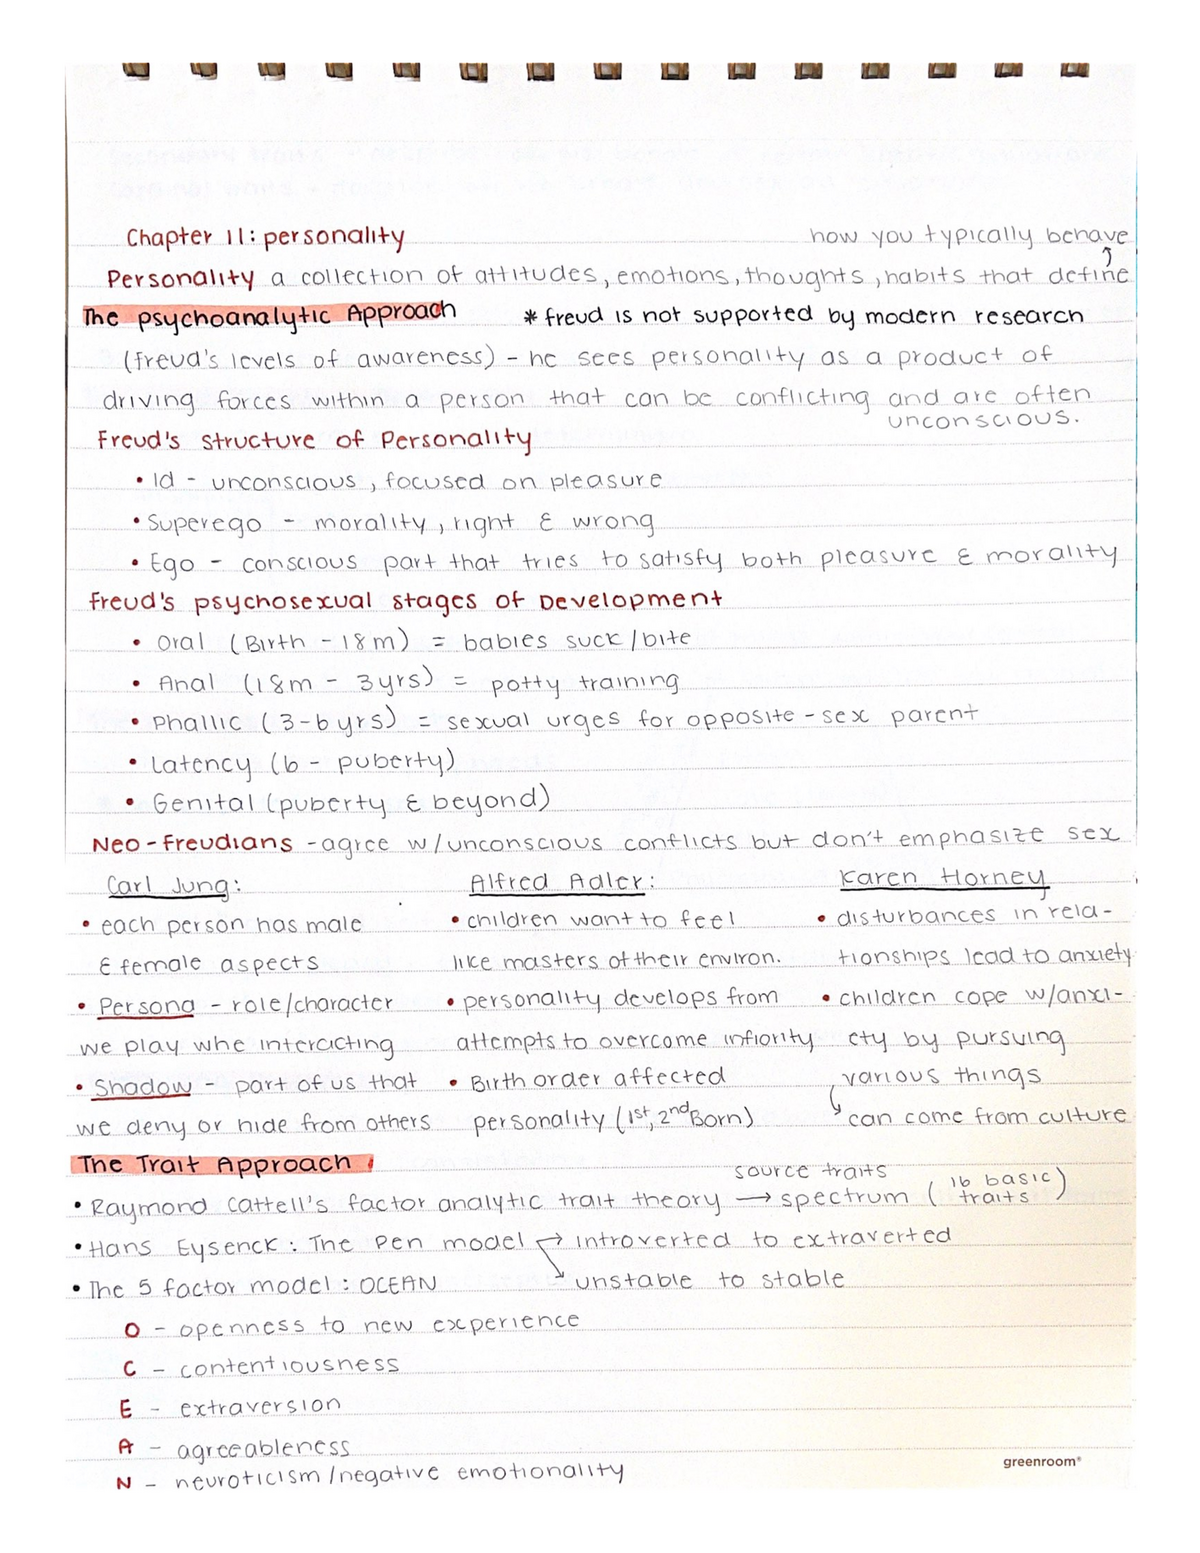 Chapter 11: personality
how you typically behave
Personality a collection of attitudes, emotions, thoughts, habits that define
The psychoanalytic Approach * freud is not supported by modern research
(freud's levels of awareness) - he sees personality as a product of
driving forces within a person that can be conflicting and are often
unconscious.
Freud's structure of Personality
• Id - unconscious, focused on pleasure
• Superego - morality, right & wrong
• Ego - conscious part that tries to satisfy both pleasure & morality
freud's psychosexual stages of Development
• Oral (Birth - 18m) = babies suck/bite
• Anal (18m - 3yrs) = potty training
• Phallic (3-6yrs) = sexual urges for opposite-sex parent
• Latency (6 - puberty)
• Genital (puberty & beyond)
Neo-freudians - agree w/unconscious conflicts but don't emphasize sex
Carl Jung:
• each person has male
& female aspects
• Persona - role/character
we play whe interacting
• Shadow - part of us that
we deny or hide from others
Alfred Adler:
• children want to feel
like masters of their environ.
• personality develops from
attempts to overcome infiority
• Birth order affected
personality (1st, 2nd Born)
Karen Horney
• disturbances in rela-
tionships lead to anxiety
• children cope w/anxi-
ety by pursuing
various things
can come from culture
The Trait Approach
• Raymond Cattell's factor analytic trait theory → source traits
spectrum (16 basic traits)
• Hans Eysenck: The Pen model → introverted to extraverted
↘ unstable to stable
• The 5 factor model: OCEAN
O - openness to new experience
C - contentiousness
E - extraversion
A - agreeableness
N - neuroticism/negative emotionality
greenroom®